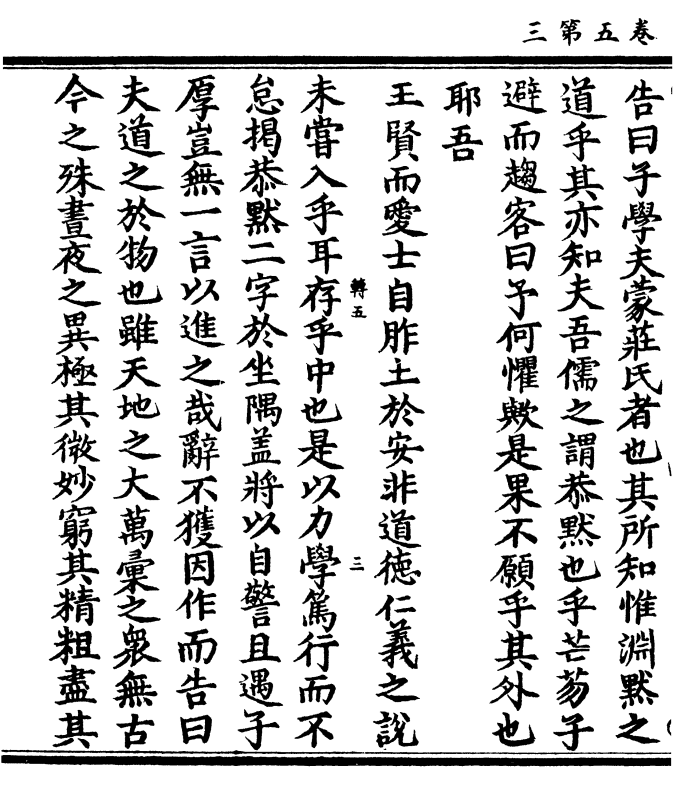 卷五第三
告曰子學夫蒙莊氏者也其所知惟淵默之
道乎其亦知夫吾儒之謂恭默也乎芒芴子
避而趨客曰予何懼歟是果不願乎其外也
耶吾
王賢而愛士自胙土於安非道德仁義之說
未嘗入乎耳存乎中也是以力學篤行而不
轉五
三
怠揭恭默二字於坐隅盖將以自警且遇子
厚豈無一言以進之哉辭不獲因作而告曰
夫道之於物也雖天地之大萬彙之衆無古
今之殊晝夜之異極其微妙窮其精粗盡其